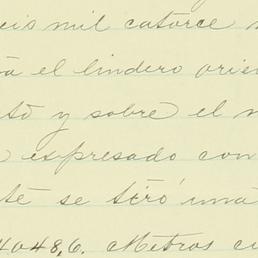 eis mil catorce
a el lindero orien
to y sobre el
espresado con
te se tiró una
4048,6. Metros cu